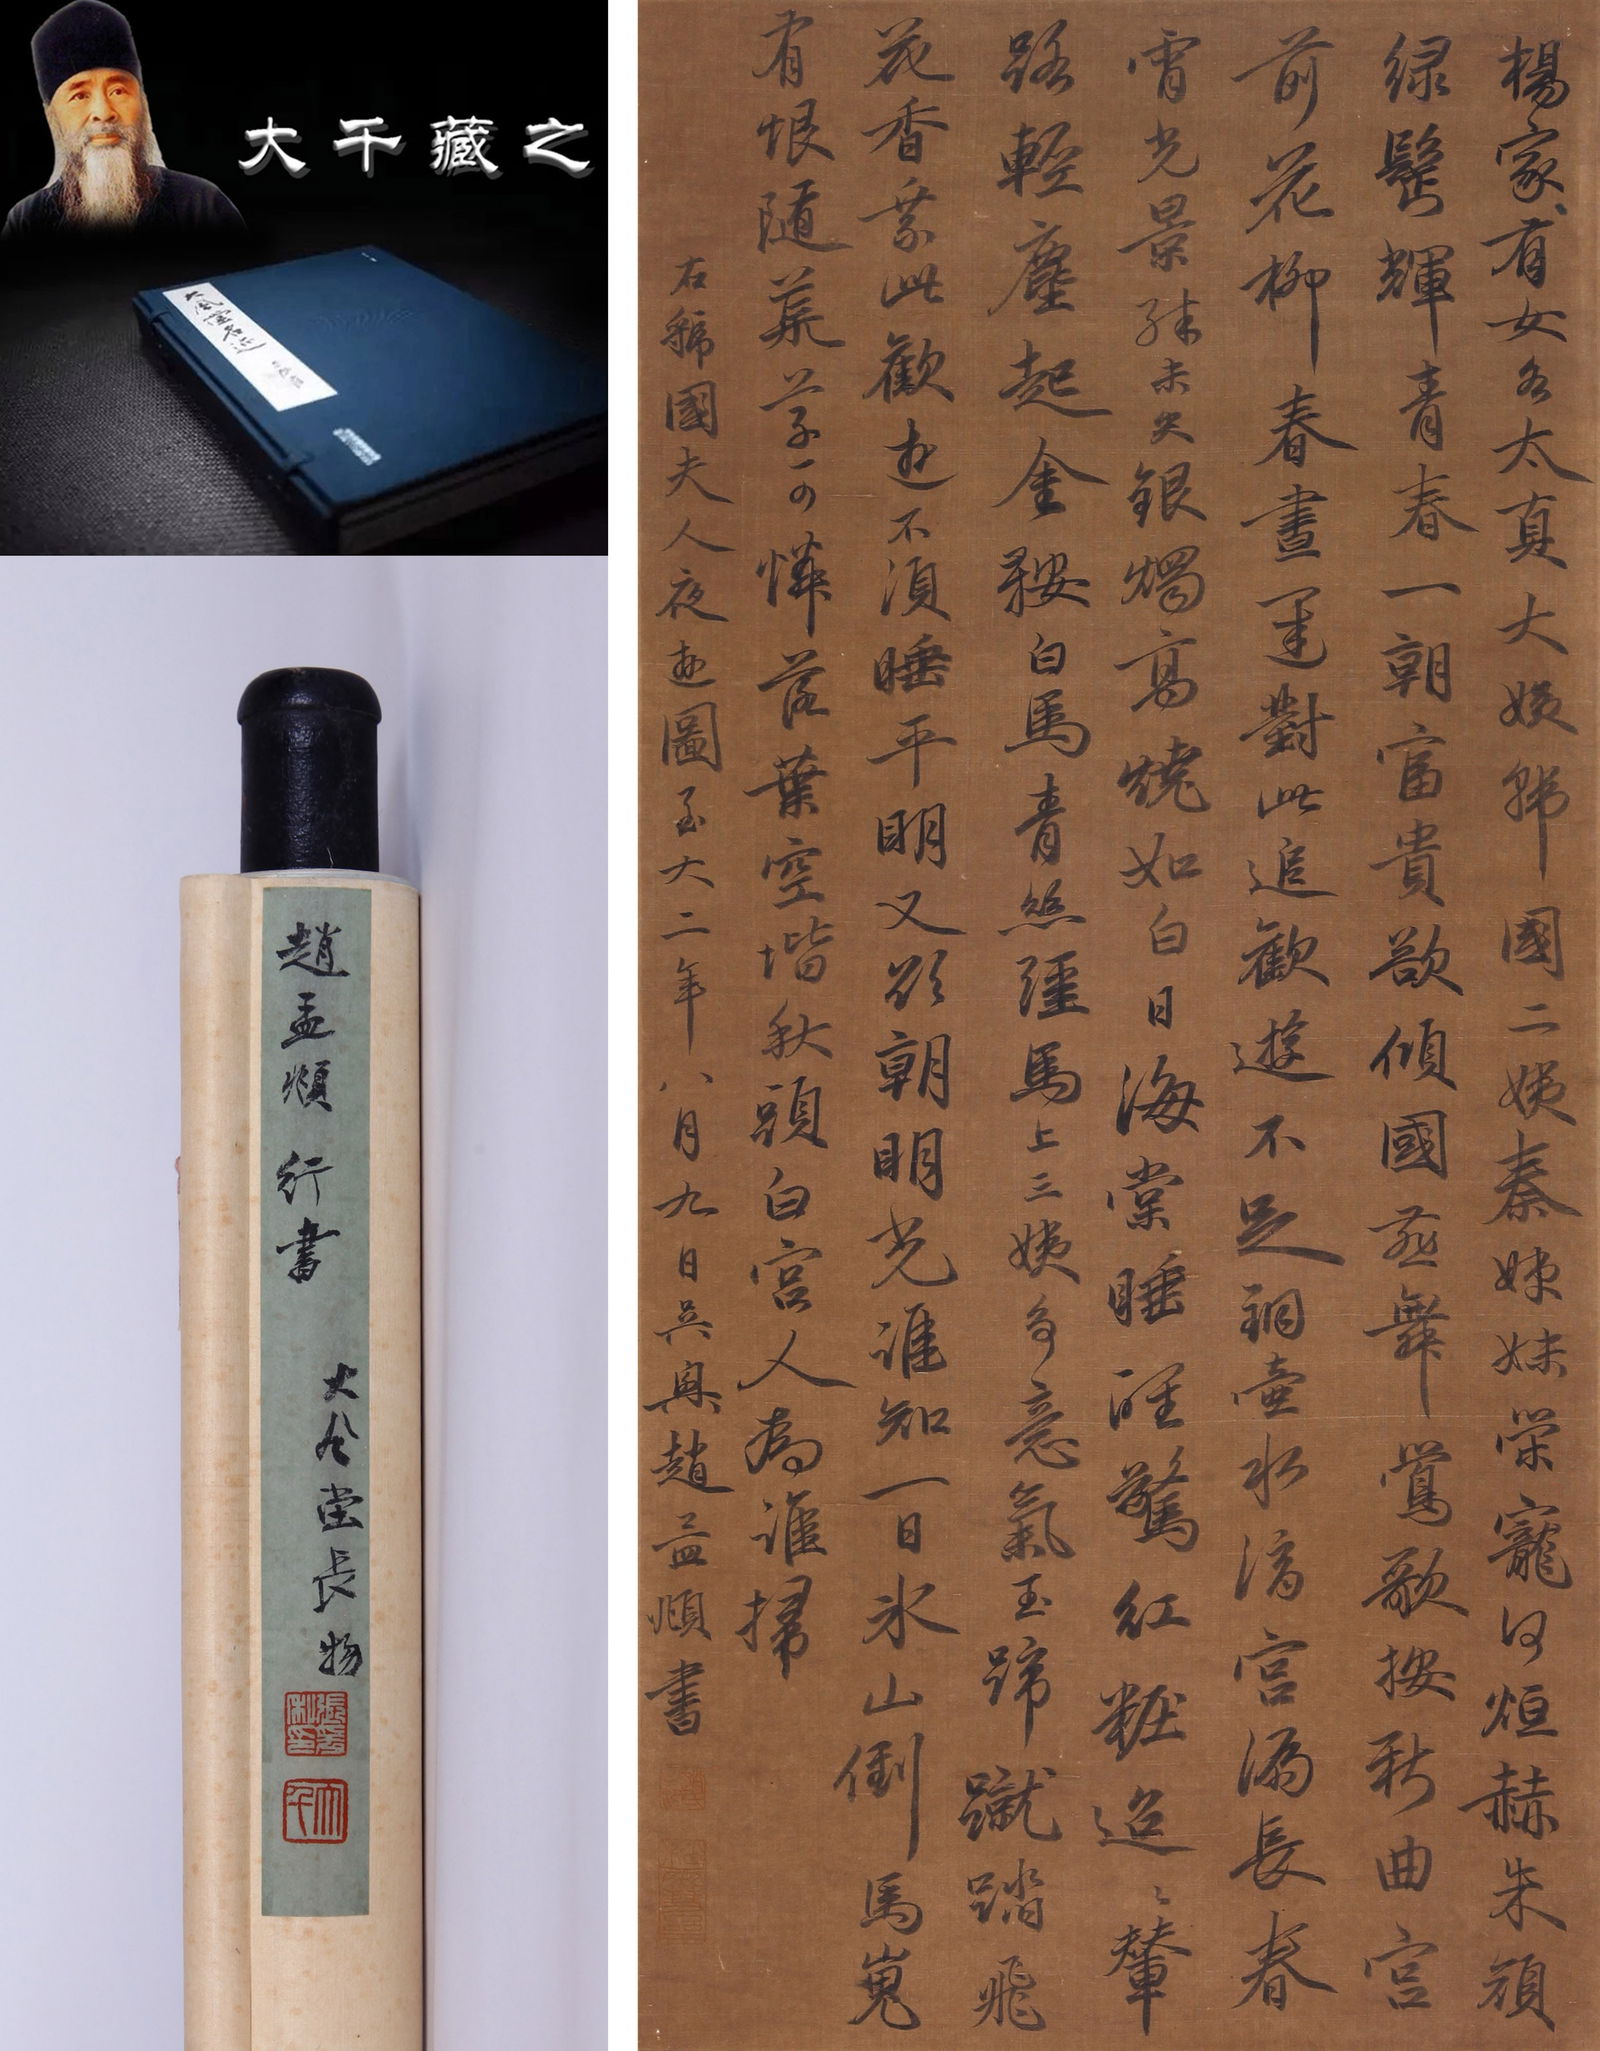 大千藏之
大風堂名迹
趙孟頫行書
大風堂長物
張爰私印
大千
楊家有女名太真大姨韓國二姨秦姊妹榮寵何烜赫朱顏
綠鬢輝青春一朝富貴欲傾國燕舞鶯歌按新曲宮
前花柳春晝遲對此追歡遊不足銅壺水滴宮漏長春
宵光景殊未央銀燭高燒如白日海棠睡醒驚紅粧迢〻輦
路輕塵起金鞍白馬青絲韁馬上三姨多意氣玉蹄蹴踏飛
花香乘此歡遊不須睡平明又欲朝明光誰知一日冰山倒馬嵬
有恨隨荒草可憐落葉空堦秋頭白宮人為誰掃
右虢國夫人夜遊圖至大二年八月九日吳興趙孟頫書